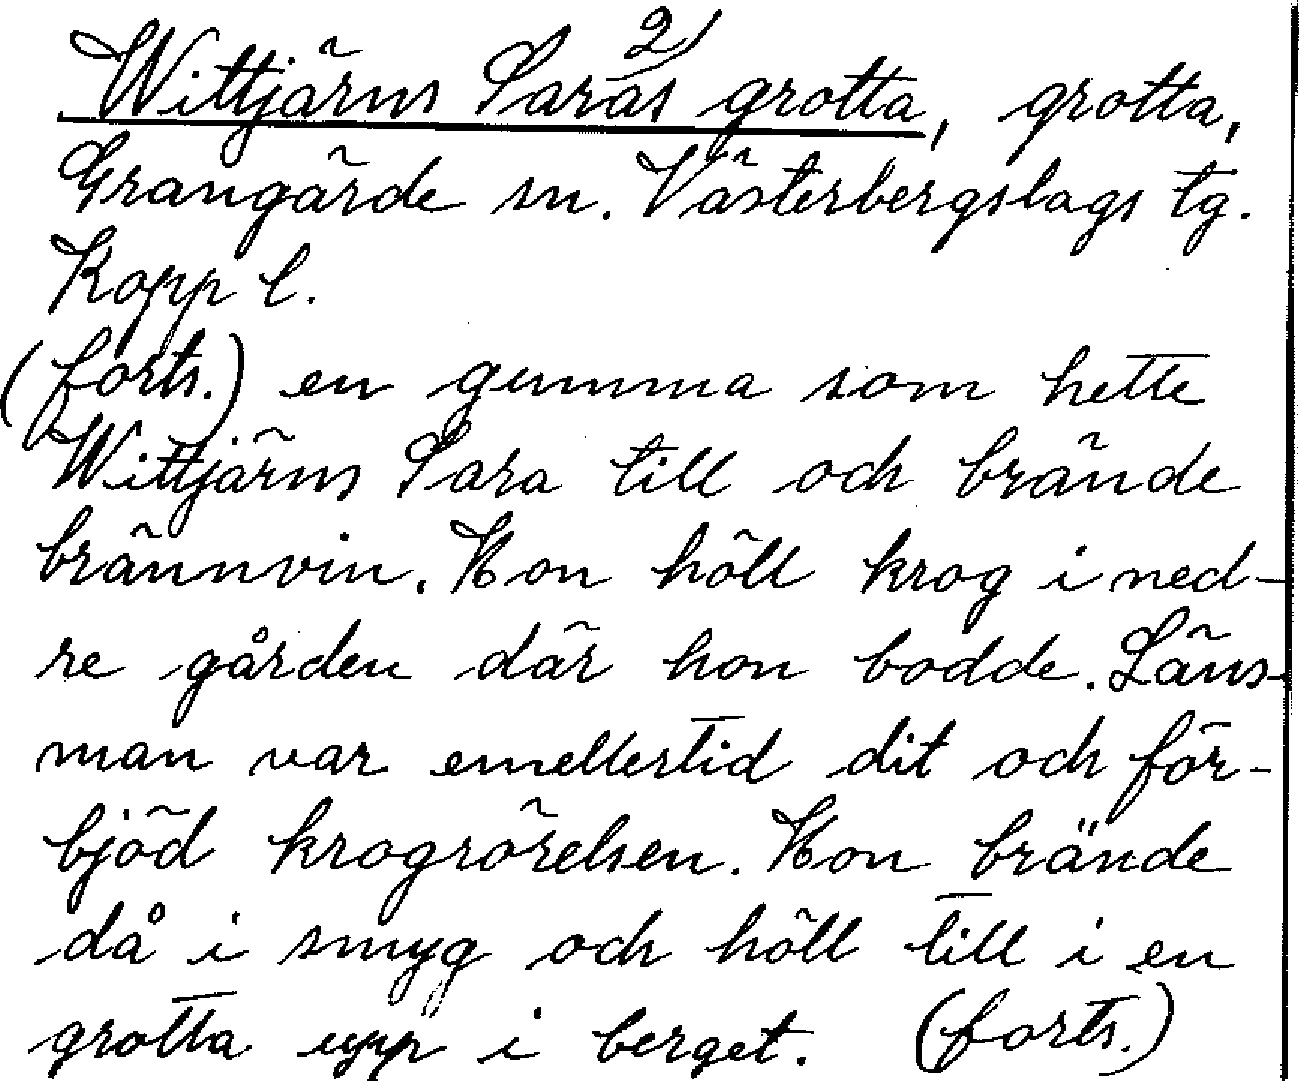 2)
Wittjärns Saras grotta, grotta,
Grangärde sn. Västerbergslags tg.
Kopp l.
(forts.) en gumma som hette
Wittjärns Sara till och brände
brännvin. Hon höll krog i ned-
re gården där hon bodde. Läns-
man var emellertid dit och för-
bjöd krogrörelsen. Hon brände
då i smyg och höll till i en
grotta upp i berget. (forts.)